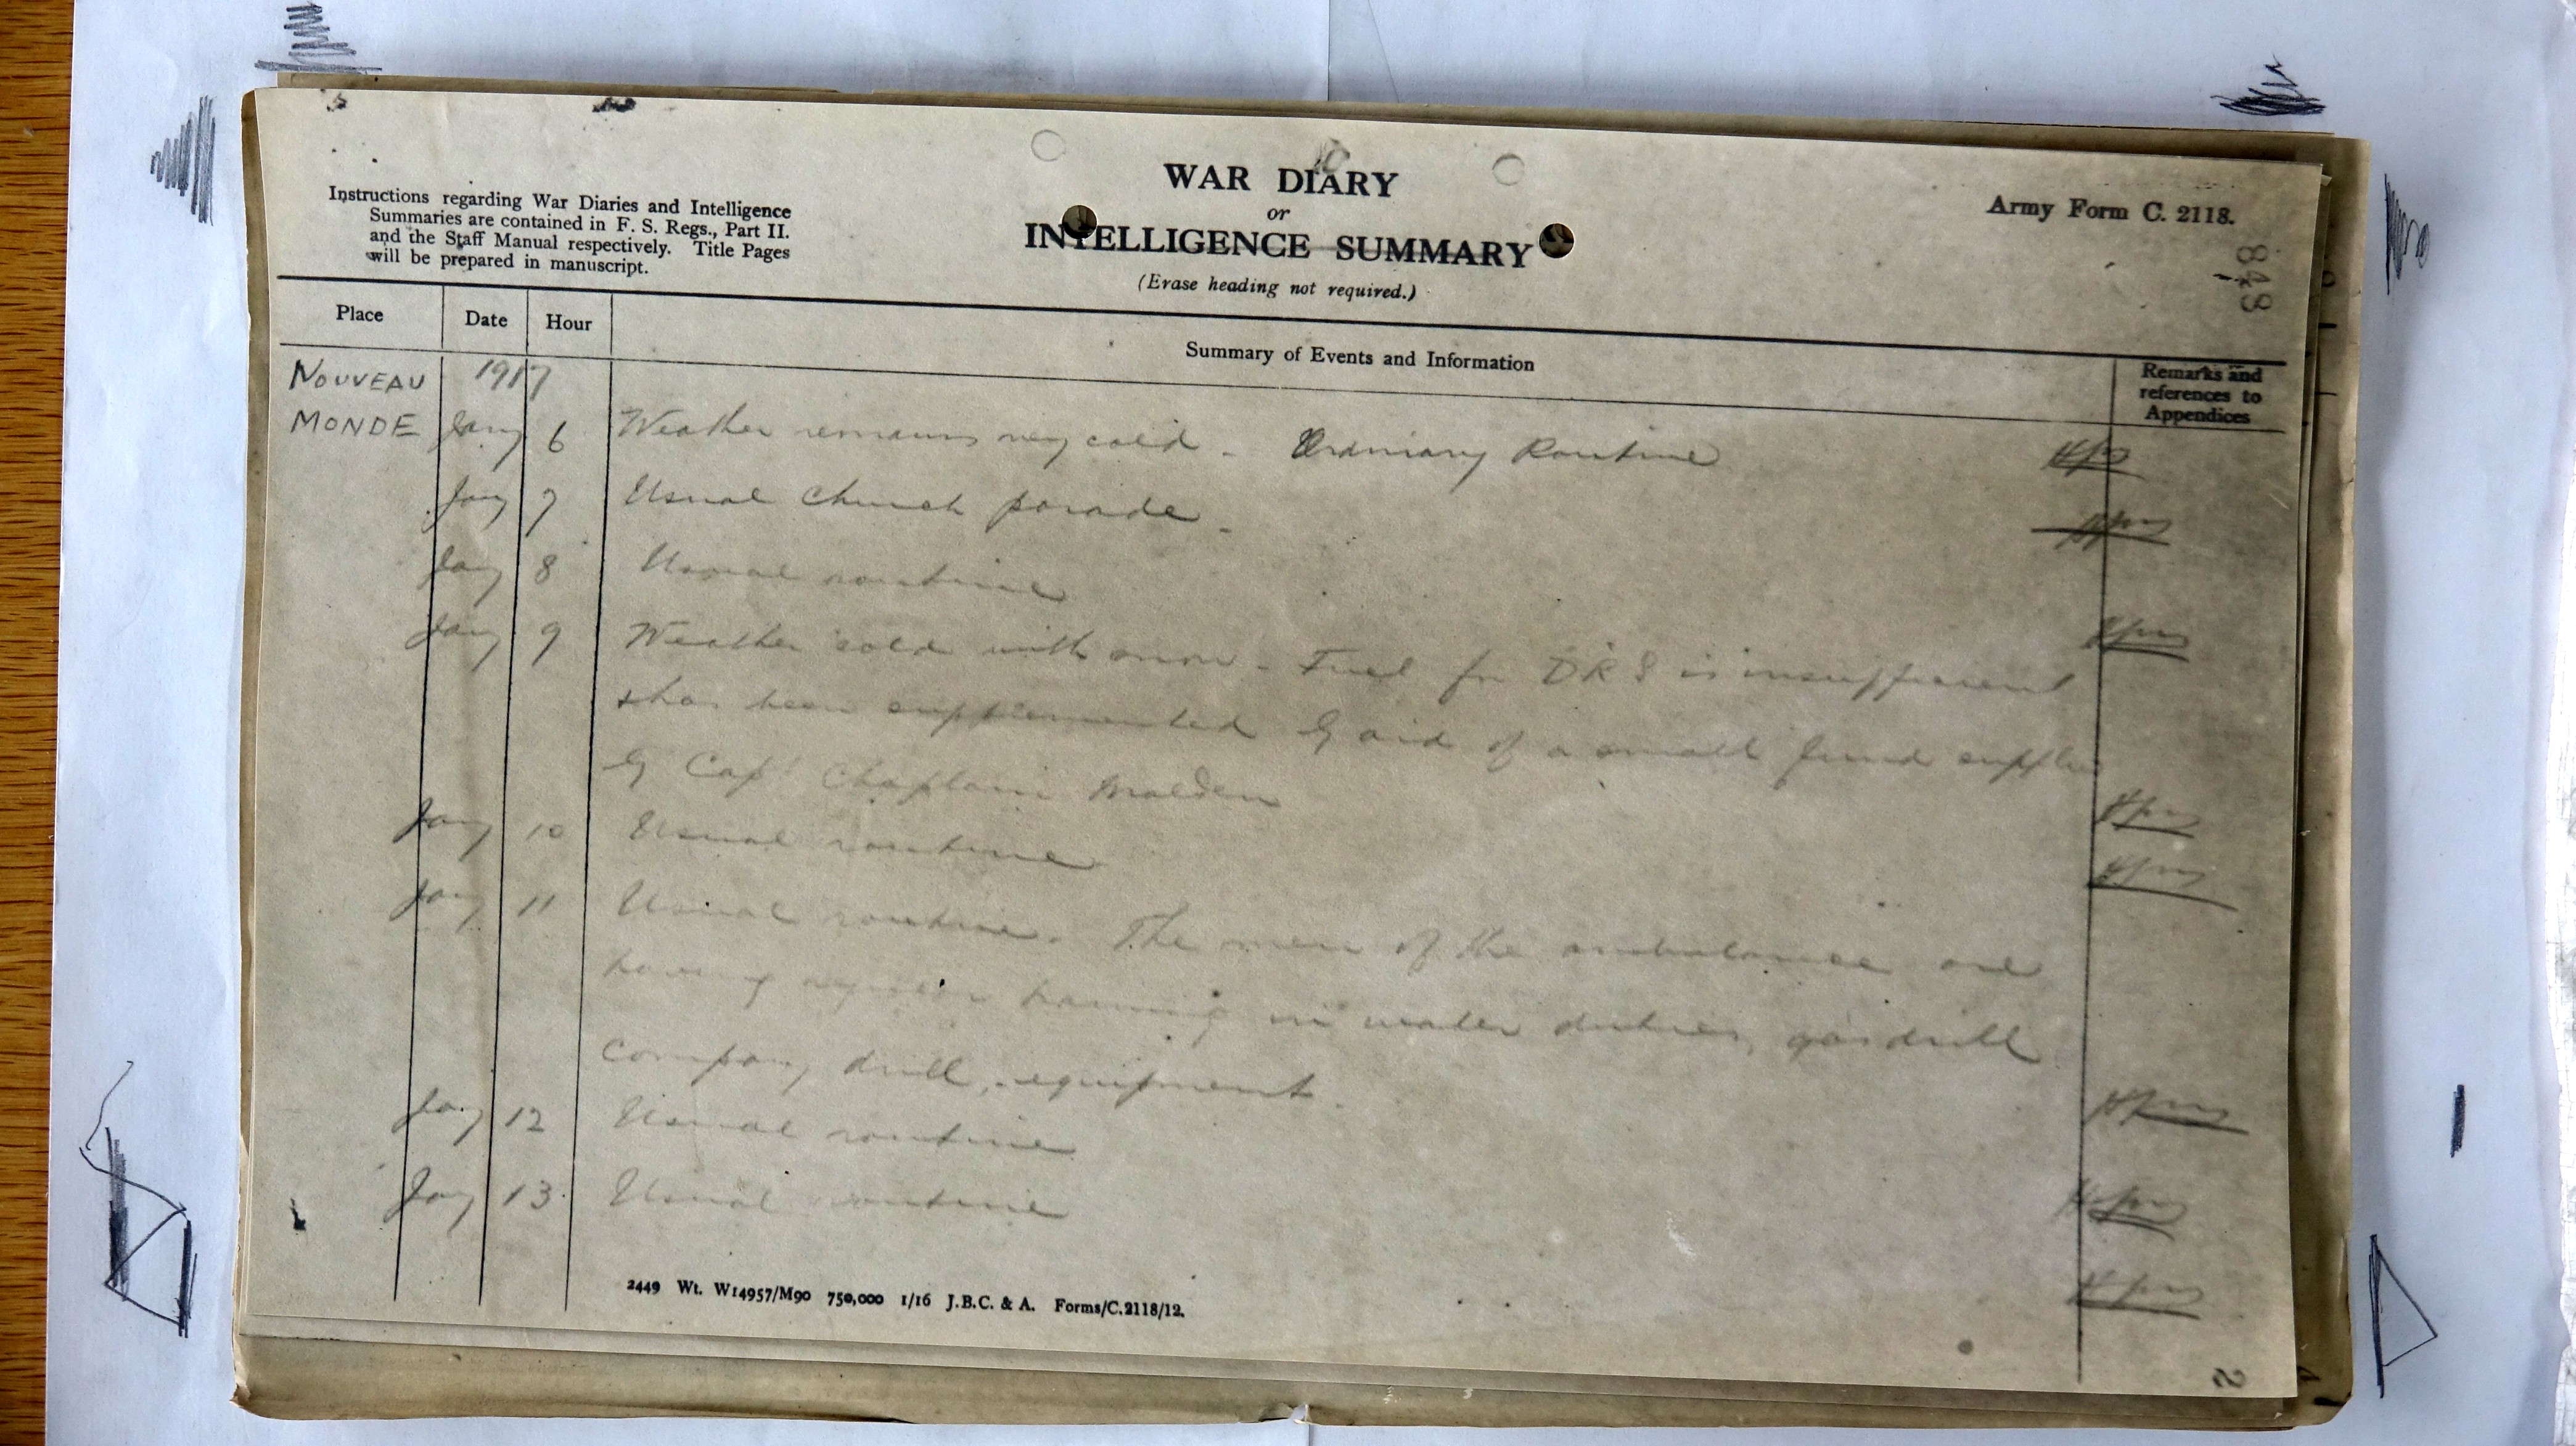 WAR DIARY
or
INTELLIGENCE SUMMARY
(Erase heading not required.)
Instructions regarding War Diaries and Intelligence
Summaries are contained in F. S. Regs., Part II.
and the Staff Manual respectively. Title Pages
will be prepared in manuscript.
Army Form C. 2118.
848
Place Date Hour Summary of Events and Information Remarks and references to Appendices
NOUVEAU 1917
MONDE Jany 6 Weather remains very cold - Ordinary Routine
Jany 7 Usual church parade -
Jany 8 Usual routine
Jany 9 Weather cold with snow - Fuel for DRS is insufficient
& has been supplemented by aid of a small fund
by Capt Chaplain Malden
Jany 10 Usual routine
Jany 11 Usual routine. The men of the ambulance are
having regular training in water duties, gas drill
company drill, equipment.
Jany 12 Usual routine
Jany 13 Usual routine
2449 Wt. W14957/M90 750,000 1/16 J.B.C. & A. Forms/C.2118/12.
2